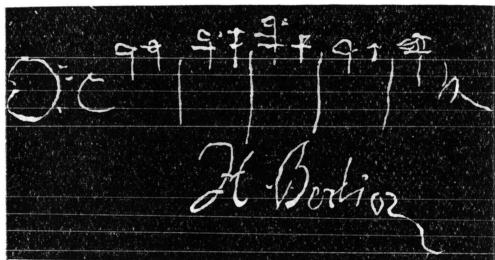 H. Berlioz